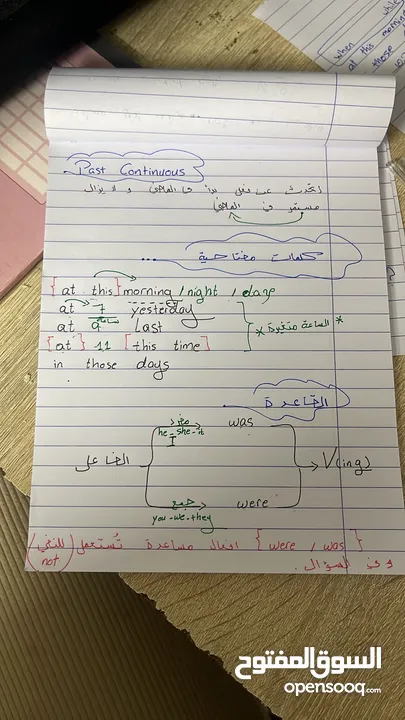 Past Continuous
نتحدث عن فعل بدأ في الماضي و لا يزال
مستمر في الماضي
كلمات مفتاحية ...
[at this] morning / night / days
at 7 yesterday
ساعة
at 9 last
* الساعة متغيرة *
[at] 11 [this time]
in those days
القاعدة
مفرد was
he - she - it
I
الفاعل V(ing)
جمع were
you - we - they
{ were / was } افعال مساعدة تُستعمل (للنفي not)
و في السؤال.
when while
at this morning
those
السوق المفتوح
opensooq.com